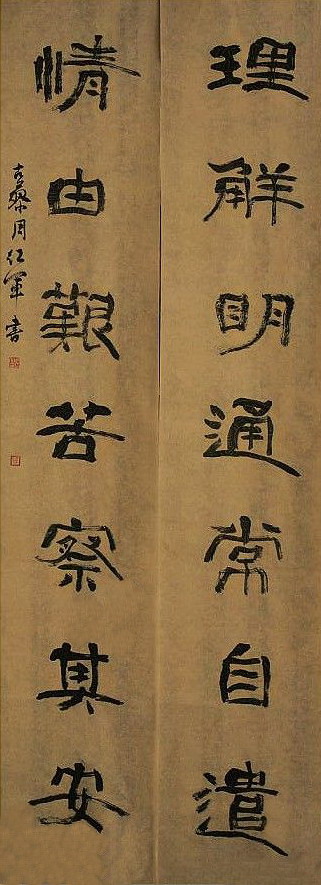 理解明通常自遣
情由艱苦察其安
古黎周红軍書